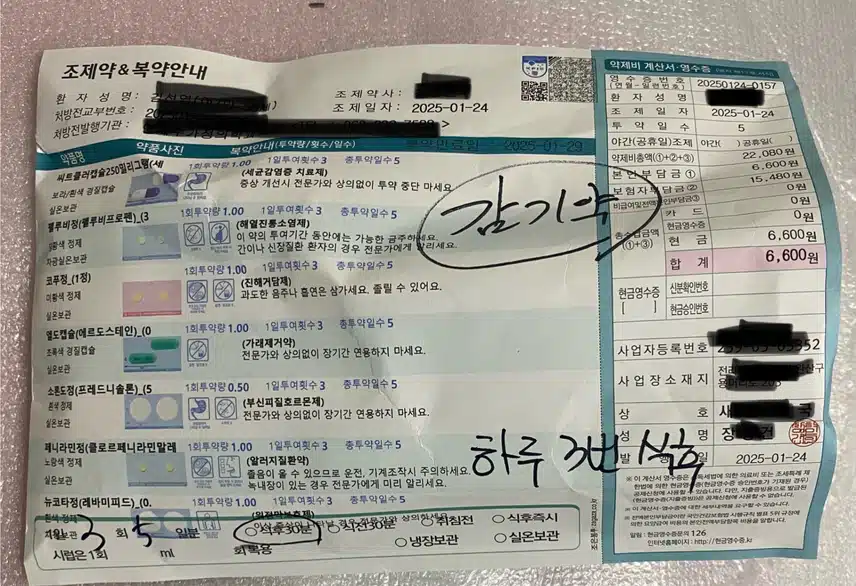 조제약&복약안내
환 자 성 명
조 제 약 사 :
처방전교부번호 :
조 제 일 자 : 2025-01-24
처방전발행기관 :
2025-01-29
약품명 약품사진 복약안내(투약량/횟수/일수)
씨트클라캡슐250밀리그램(세
보라/흰색 경질캡슐
실온보관
1회투약량1.00 1일투여횟수3 총투약일수5
(세균감염증 치료제)
증상 개선시 전문가와 상의없이 투약 중단 마세요.
펠루비정(펠루비프로펜)_(3
정제
차광실온보관
1회투약량1.00 1일투여횟수3 총투약일수5
(해열진통소염제)
이 약의 투여기간 동안에는 가능한 금주하세요.
간이나 신장질환 환자의 경우 전문가에게 알리세요.
코푸정_(1정)
미황색 정제
실온보관
1회투약량1.00 1일투여횟수3 총투약일수5
(진해거담제)
과도한 음주나 흡연은 삼가세요. 졸릴 수 있어요.
엘도캡슐(에르도스테인)_(0
초록색 경질캡슐
실온보관
1회투약량1.00 1일투여횟수3 총투약일수5
(가래제거약)
전문가와 상의없이 장기간 연용하지 마세요.
소론도정(프레드니솔론)_(5
흰색 정제
실온보관
1회투약량0.50 1일투여횟수3 총투약일수5
(부신피질호르몬제)
전문가와 상의없이 장기간 연용하지 마세요.
페니라민정(클로르페니라민말레
노랑색 정제
실온보관
1회투약량1.00 1일투여횟수3 총투약일수5
(알러지질환약)
졸음이 올 수 있으므로 운전, 기계조작시 주의하세요.
녹내장이 있는 경우 전문가에게 미리 알리세요.
뉴코타정(레바미피드)_(0.
흰색 정제
1회투약량1.00 1일투여횟수3 총투약일수5
3 회 5 일분
식후30분 식전30분 취침전 식후즉시
시럽은 1회 ml 복용 냉장보관 실온보관
감기약
하루 3번 식후
약제비 계산서·영수증
영 수 증 번 호
(연월-일련번호) 20250124-0157
환 자 성 명
조 제 일 자 2025-01-24
투 약 일 수 5
야간(공휴일)조제 야간( ) 공휴일( )
약제비총액(①+②+③) 22,080원
본 인 부 담 금 ① 6,600원
보험자부담금② 15,480원
비급여및전액본인부담금③ 0원
카 드 0원
현금영수증 0원
총수납금액
(①+③)
현 금 6,600원
합 계 6,600원
현금영수증
[ ]
신분확인번호
현금승인번호
사업자등록번호
사 업 장 소 재 지
상 호
성 명
발 행 일 2025-01-24
알림 : 현금영수증 문의 126
인터넷홈페이지 : http://현금영수증.kr